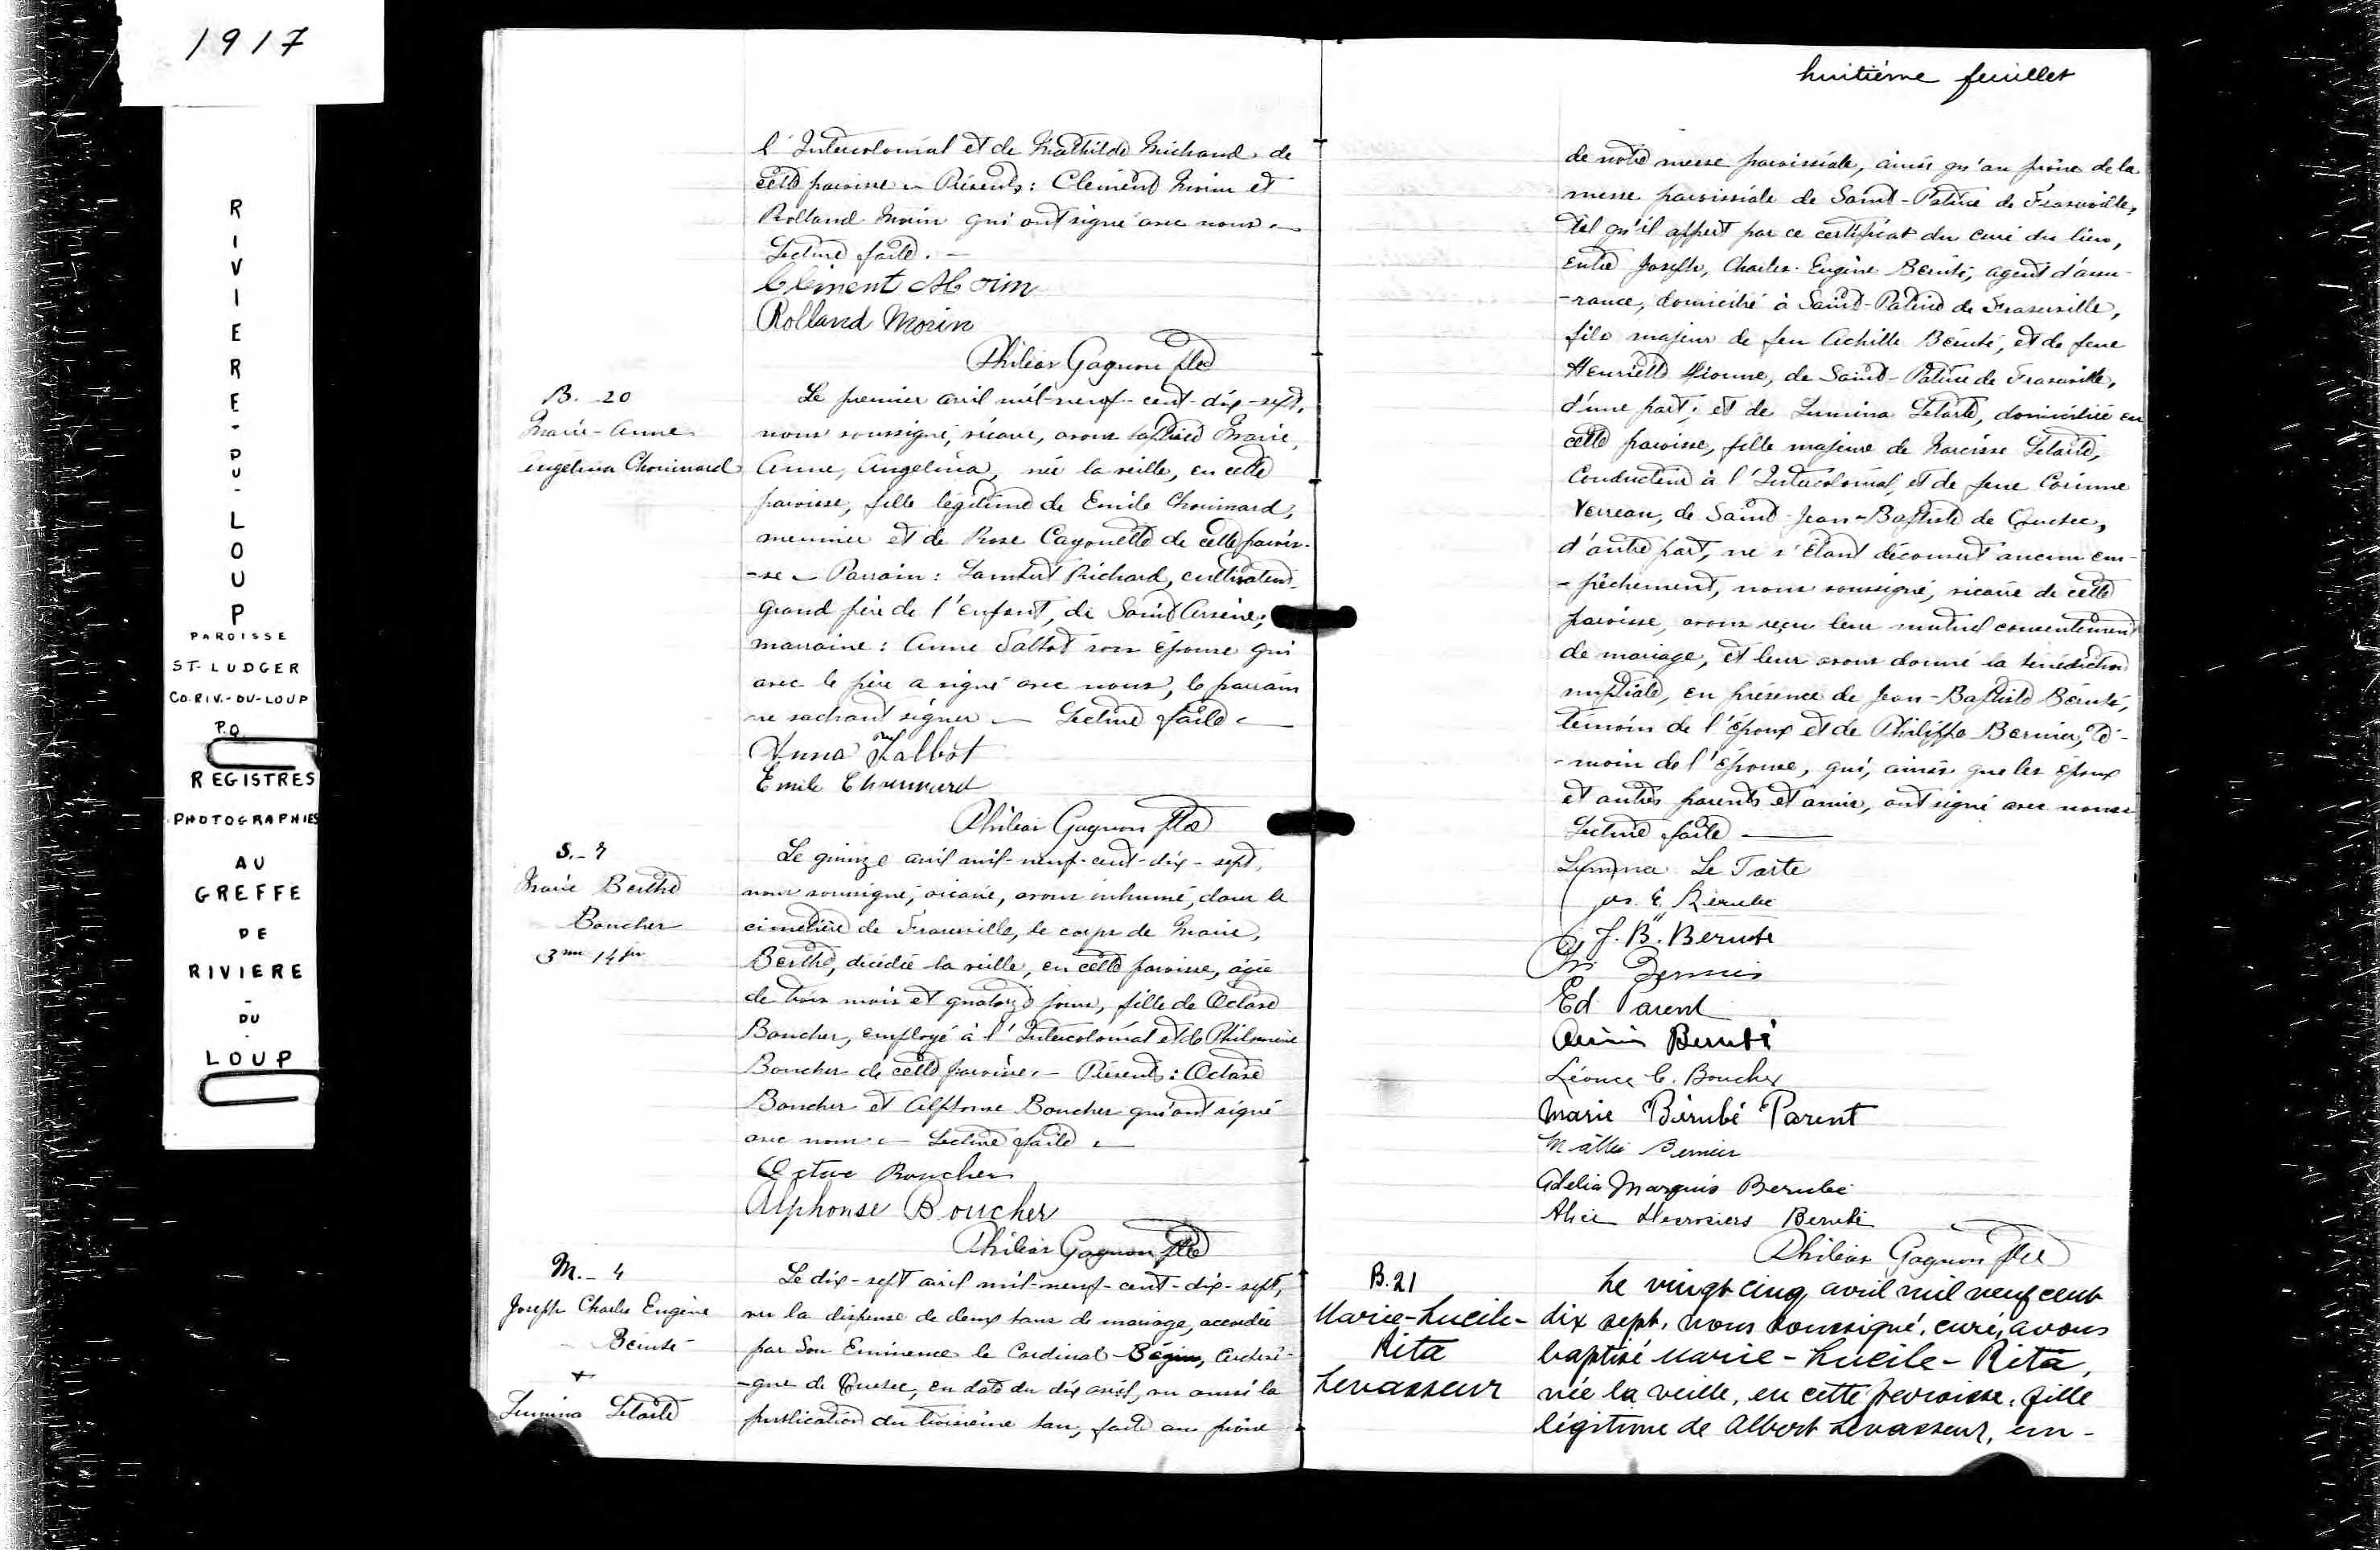 1917
RIVIERE-DU-LOUP
PAROISSE
ST-LUDGER
CO.RIV.-DU-LOUP
P.Q.
REGISTRES
PHOTOGRAPHIES
AU
GREFFE
DE
RIVIERE
-
DU
-
LOUP
l'Intercolonial et de Mathilde Michaud de
cette paroisse - Présents: Clément Morin et
Rolland Morin qui ont signé avec nous. -
Lecture faite. -
Clément Morin
Rolland Morin
Philias Gagnon ptre
B. 20
Marie-Anne
Angélina Chouinard
Le premier avril mil-neuf-cent-dix-sept,
nous soussigné, vicaire, avons baptisé Marie,
Anne, Angelina, née la veille, en cette
paroisse, fille légitime de Emile Chouinard,
meunier et de Rose Cayouette de cette parois-
-se - Parrain: Lambert Richard, cultivateur
grand père de l'enfant, de Saint Arsène;
marraine: Anne Talbot son épouse qui
avec le père a signé avec nous, le parrain
ne sachant signer - Lecture faite -
Anna Talbot
Emile Chouinard
Philias Gagnon ptre
S.-7
Marie Berthe
Boucher
3 m 14 jrs
Le quinze avril mil-neuf-cent-dix-sept,
nous soussigné, vicaire, avons inhumé, dans le
cimetière de Fraserville, le corps de Marie,
Berthe, décédée la veille, en cette paroisse, âgée
de trois mois et quatorze jours, fille de Octave
Boucher, employé à l'Intercolonial et de Philomène
Boucher de cette paroisse. - Présents: Octave
Boucher et Alphonse Boucher qui ont signé
avec nous - Lecture faite -
Octave Boucher
Alphonse Boucher
Philias Gagnon ptre
M.-4
Joseph Charles Eugène
Bérubé
+
Lumina Letarte
Le dix-sept avril mil-neuf-cent-dix-sept,
vu la dispense de deux bans de mariage, accordée
par Son Eminence le Cardinal Bégin, Archevê-
-que de Québec, en date du dix avril, vu aussi la
publication du troisième ban, faite au prône
huitième feuillet
de notre messe paroissiale, ainsi qu'au prône de la
messe paroissiale de Saint-Patrice de Fraserville,
tel qu'il appert par ce certificat du curé du lieu,
entre Joseph, Charles-Eugène Bérubé, agent d'assu-
-rance, domicilié à Saint-Patrice de Fraserville,
fils majeur de feu Achille Bérubé, et de feue
Henriette Dionne, de Saint-Patrice de Fraserville,
d'une part; et de Lumina Letarte, domiciliée en
cette paroisse, fille majeure de Narcisse Letarte,
Conducteur à l'Intercolonial, et de feue Corinne
Verreau, de Saint-Jean-Baptiste de Québec,
d'autre part, ne s'étant découvert aucun em-
-pêchement, nous soussigné, vicaire de cette
paroisse, avons reçu leur mutuel consentement
de mariage, et leur avons donné la bénédiction
nuptiale, en présence de Jean-Baptiste Bérubé,
témoin de l'époux et de Philippe Bernier, té-
-moin de l'épouse, qui, ainsi que les époux
et autres parents et amis, ont signé avec nous
Lecture faite -
Lumina Le Tarte
Jos. E. Bérubé
J. B. Berube
Ph Bernier
Ed Parent
Berubé
Léonce C. Boucher
Marie Bérubé Parent
Bernier
Adelia Marquis Berubé
Alice Desrosiers Berubé
Philias Gagnon ptre
B.21
Marie-Lucile-
Rita
Levasseur
Le vingt cinq avril mil neuf cent
dix sept, nous soussigné, curé, avons
baptisé Marie-Lucile-Rita,
née la veille, en cette paroisse, fille
légitime de Albert Levasseur, em-